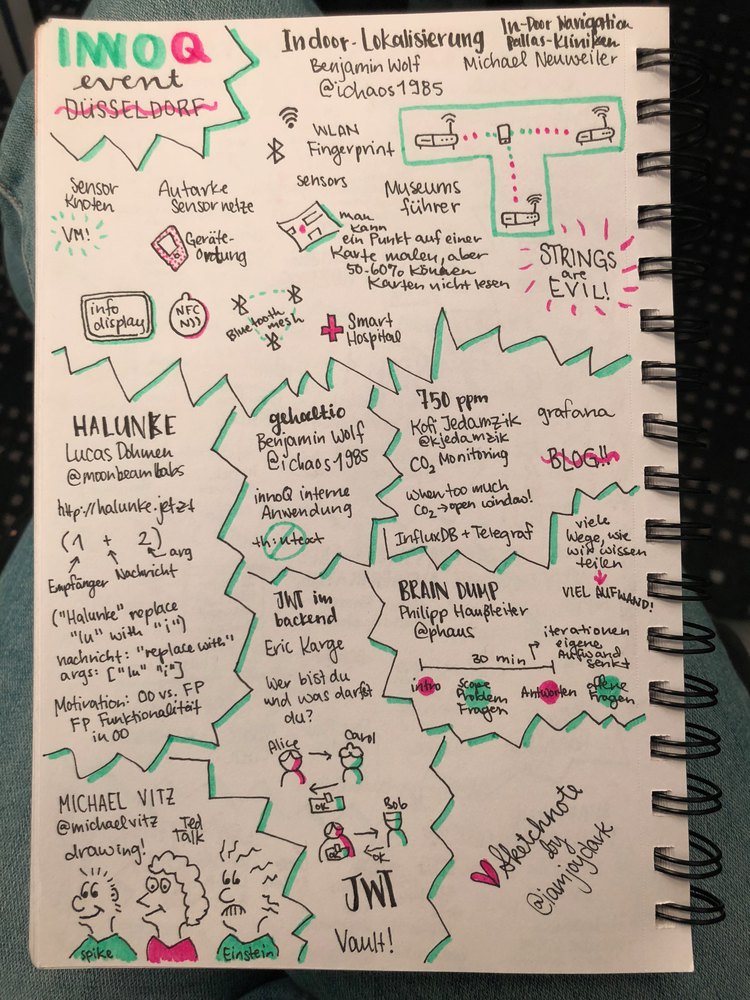 INNOQ
event
DÜSSELDORF
Indoor-Lokalisierung
Benjamin Wolf
@ichaos1985
In-Door Navigation
Pallas-Kliniken
Michael Neuweiler
WLAN
Fingerprint
sensors
Sensor
Knoten
VM!
Autarke
Sensornetze
Geräte-
ortung
Museums
führer
man
kann
ein Punkt auf einer
Karte malen, aber
50-60% können
Karten nicht lesen
STRINGS
are
EVIL!
info
display
NFC
Bluetooth
mesh
Smart
Hospital
HALUNKE
Lucas Dohmen
@moonbeamlabs
http://halunke.jetzt
(1 + 2)
arg
Empfänger
Nachricht
("Halunke" replace
"lu" with "i")
nachricht: "replace with"
args: ["lu" "i"]
Motivation: OO vs. FP
FP Funktionalität
in OO
gehaltio
Benjamin Wolf
@ichaos1985
innoQ interne
Anwendung
th:utext
750 ppm
Kofi Jedamzik
@kjedamzik
CO2 Monitoring
when too much
CO2 → open window!
InfluxDB + Telegraf
grafana
BLOG!!
JWT im
backend
Eric Karge
Wer bist du
und was darfst
du?
Alice
Carol
OK
Bob
OK
OK
JWT
Vault!
BRAIN DUMP
Philipp Haußleiter
@phaus
viele
Wege, wie
wir wissen
teilen
VIEL AUFWAND!
iterationen
eigene
Aufwand
senkt
30 min
intro
scope
Problem
Fragen
Antworten
offene
Fragen
MICHAEL VITZ
@michaelvitz
Ted
Talk
drawing!
spike
Einstein
Sketchnote
by
@iamjoyclark